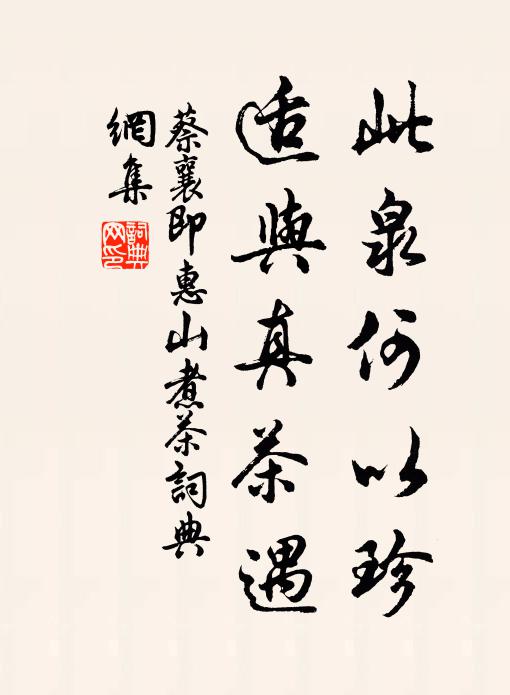 此泉何以珍
适與真茶遇
蔡襄即惠山煮茶詞典
網集
詞典网印